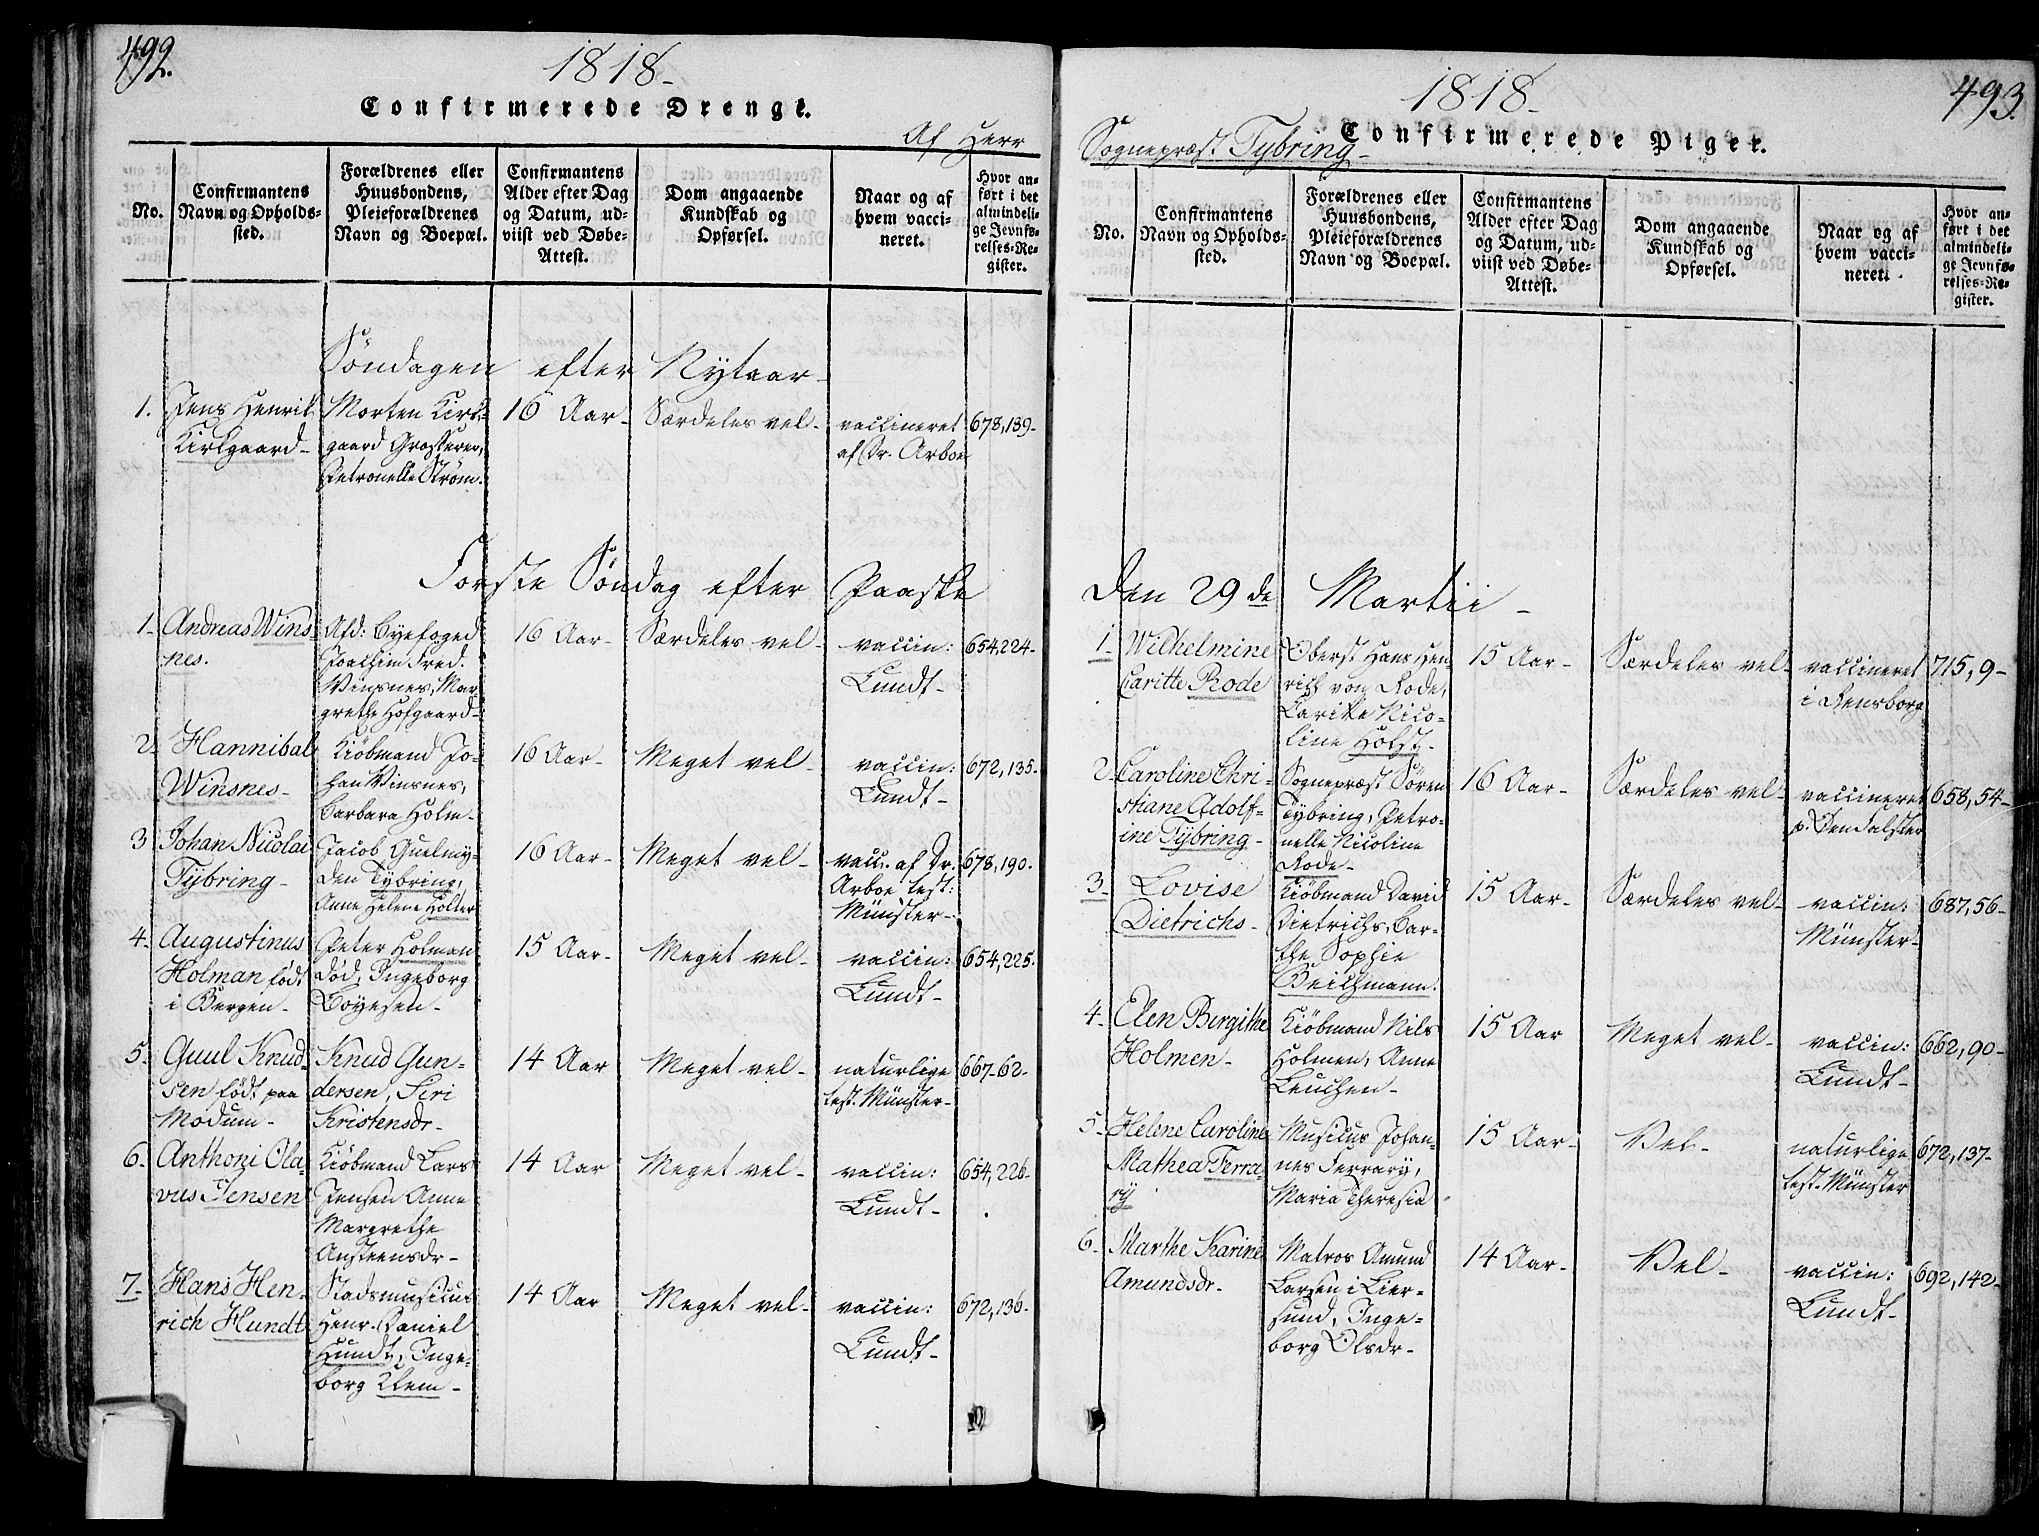 492.
1818-
Confirmerede Drenge.
Af Herr
No.
Confirmantens
Navn og Opholds-
sted.
Forældrenes eller
Huusbondens,
Pleieforældrenes
Navn og Boepæl.
Confirmantens
Alder efter Dag
og Datum, ud-
viist ved Døbe-
Attest.
Dom angaaende
Kundskab og
Opførsel.
Naar og af
hvem vacci-
neret.
Hvor an-
ført i det
almindeli-
ge Jevnfø-
relses-Re-
gister.
Søndagen efter Nytaar-
1. Jens Henrik
Kirkgaard-
Morten Kirk-
gaard Grosserer,
Petronelle Strøm.
16 Aar-
Særdeles vel-
vaccineret
af Dr. Arboe
678,139-
Første Søndag efter Paaske
1- Andreas Wins
nes.
Afd: Byefoged
Joachim Fred.
Winsnes, Mar-
grethe Hofgaard-
16 Aar-
Særdeles vel-
vaccin:
Lundt-
654,224-
2- Hannibal
Winsnes-
Kiöbmand Jo-
han Winsnes,
Barbara Holm-
16 Aar-
Meget vel-
vaccin:
Lundt-
672,135.
3 Johan Nicolai
Tybring-
Jacob Guelmy-
den Tybring,
Anne Helene Holter
16 Aar-
Meget vel-
vacc. af Dr.
Arboe test:
Münster-
678,190.
4- Augustinus
Holman født
i Bergen-
Peter Holman
død, Ingeborg
Boyesen-
15 Aar-
Meget vel-
vaccin:
Lundt-
654,225.
5- Guul Knud-
sen født paa
Modum-
Knud Gun-
dersen, Siri
Kristensdr-
14 Aar
Meget vel-
naturlige
test. Münster-
667-62-
6- Anthoni Ola-
vus Jensen
Kiöbmand Lars
Jensen Anne
Margrethe
Austeensdr-
14 Aar
Meget vel-
vaccin:
Lundt-
654,226-
7- Hans Hen-
rich Hundt
Stadsmusicus
Henr. Daniel
Hundt, Inge-
borg Klem-
14 Aar
Meget vel-
vaccin:
Lundt-
672,136-
493.
1818-
Confirmerede Piger.
Sognepræst Tybring-
No.
Confirmantens
Navn og Opholds-
sted.
Forældrenes eller
Huusbondens,
Pleieforældrenes
Navn og Boepæl.
Confirmantens
Alder efter Dag
og Datum, ud-
viist ved Døbe-
Attest.
Dom angaaende
Kundskab og
Opførsel.
Naar og af
hvem vacci-
neret.
Hvor an-
ført i det
almindeli-
ge Jevnfø-
relses-Re-
gister.
Den 29de Martii-
1- Wilhelmine
Caritte Rode
Oberst Hans Hen-
rich von Rode,
Caritte Nico-
line Holst-
15 Aar-
Særdeles vel-
vaccineret
i Rensborg
715,9-
2- Caroline Chri-
stiane Adolf-
ine Tybring-
Sognepræst Søren
Tybring, Petro-
nelle Nicoline
Rode-
16 Aar-
Særdeles vel-
vaccineret
658,54-
3- Lovise
Dietrichs-
Kiöbmand David
Dietrichs, Dor-
the Sophie
Beichmann.
15 Aar-
Særdeles vel-
vaccin:
Münster-
687,56-
4- Elen Birgithe
Holmen-
Kiöbmand Nils
Holmen, Anne
Leuchen-
15 Aar
Meget vel-
vaccin:
Lundt-
662,90-
5- Helene Caroline
Mathea Ferra-
ry
Musicus Johan-
nes Ferrary,
Maria Theresia
15 Aar-
Vel-
naturlige
test. Münster
672,137-
6- Marthe Karine
Amundsdr-
Matros Amund
Larsen i Lier-
sund, Inge-
borg Olsdr-
14 Aar-
Vel-
vaccin:
Lundt-
692,142-